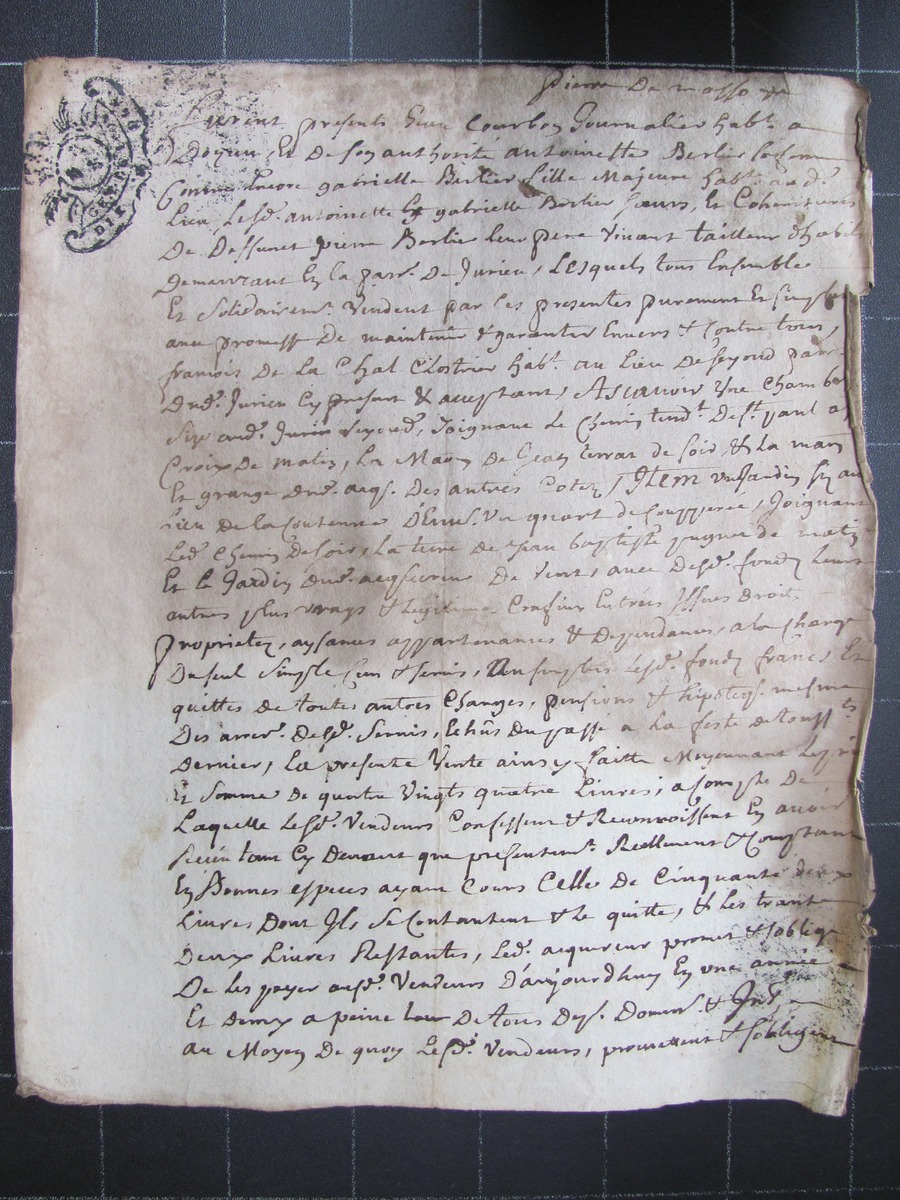 pierre De masso
furent presents Jean Courbon Journalier habt. a
Doyeu, Et De son authorité antoinette Berlier sa femme
Comme Encore gabrielle Berlier fille Majeure habt. aud.
Lieu, Lesd. antoinette Et gabrielle Berlier sœurs, Et Coheritieres
De Deffunct pierre Berlier leur pere Vivant tailleur d'habit
Demeurant En la parr. De Jurieu, Lesquels tous Ensemble
Et Solidairemt. Vendent par Ces presentes purement Et simple
avec promesse De maintenir & garentir Envers & Contre tous,
francois De La Chal Clostrier habt. au Lieu De seyoud parr.
Dud. Jurieu Cy present & acceptant, Ascavoir Une Chambre
size aud. seyoud, Joignant Le Chemin tendt. De st. paul a
Croix De matin, La Maison De Jean terrat de soir, & La maison
Et grange dud. acq. Des autres Cotez, Item un Jardin sis au
lieu de la Contenue D'Env. Un quart de Coupperée, Joignant
Led. Chemin de soir, la terre de Jean baptiste de matin
Et Le Jardin dud. acquereur De vent, avec Desd. fondz leurs
autres plus vrays & legitimes Confins Entrées Issues droits
proprietez, aysances appartenances & Dependances, a la Charge
Du seul simple Cens & servis, lesd. fondz francs Et
quittes de toutes autres Charges, pensions & hipoteq. mesme
Des arrer. Desd. Servis, Echus Du passé a La feste de touss.ts
Dernier, La presente Vente ainsy faitte Moyennant Le prix
Et Somme De quatre Vingts quatre Livres, a Compte De
Laquelle Lesd. Vendeurs Confessent & Reconnoissent En avoir
Receu tant Cy Devant que presentemt. Reellement & Comptant
En Bonnes especes ayant Cours Celle De Cinquante deux
Livres Dont Ils se Contantent & le quitte, & Les trante
Deux Livres Restantes, Led. acquereur promet & s'oblige
De les payer ausd. Vendeurs D'aujourdhuy En une année
Et Demy a peine De tous Dep. Domm. & Int.
au Moyen De quoy Lesd. Vendeurs, promettent & s'obligent